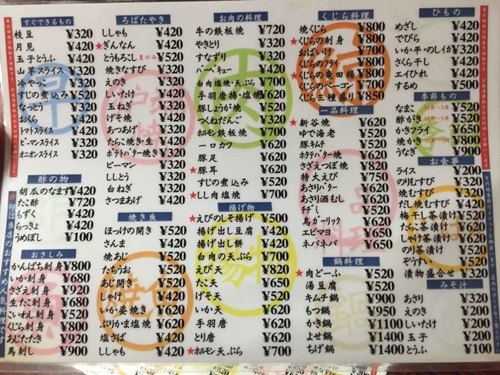 すぐできるもの
枝豆 ¥320
月見 ¥420
玉子とうふ ¥420
山芋スライス ¥320
冷やっこ ¥320
すじの煮込み ¥520
なっとう ¥320
おくら ¥320
トマトスライス ¥420
ピーマンスライス ¥320
オニオンスライス ¥320
酢の物
胡瓜のなます ¥420
たこ酢 ¥720
もずく ¥420
らっきょ ¥420
うめぼし ¥100
おさしみ
かんぱち刺身 ¥800
いか刺身 ¥680
さざえ刺身 ¥820
生たこ刺身 ¥680
こいわし刺身 ¥500
くじら刺身 ¥800
あじたたき ¥920
馬刺し ¥900
ろばたやき
ししゃも ¥420
★ぎんなん ¥420
とうもろこし ¥520
焼きなすび ¥320
えのき ¥320
しいたけ ¥420
玉ねぎ ¥320
げそ焼 ¥320
あつあげ ¥320
たらこ焼・生 ¥420
ポテトバター焼き ¥320
ピーマン ¥320
ししとう ¥320
白ねぎ ¥320
さつまあげ ¥420
焼き魚
ほっけの開き ¥520
さんま ¥420
焼あじ ¥520
たちうお ¥520
あじ開き ¥520
しゃけ ¥420
いか姿焼き ¥520
ぶりかま塩焼 ¥520
塩さば ¥420
ししゃも ¥420
お肉の料理
牛の鉄板焼 ¥720
やきとり ¥320
すなずり ¥320
バーベキュー ¥420
白肉塩焼・天ぷら ¥620
手羽唐揚・塩焼 ¥520
豚しょうが焼 ¥520
つくねだんご ¥320
ホルモン鉄板焼 ¥520
一口カツ ¥620
豚足 ¥620
★豚耳 ¥620
すじの煮込み ¥520
★しし肉塩焼 ¥700
揚げ物
★えびのしそ揚げ ¥500
揚げ出し豆腐 ¥520
揚げ出し餅 ¥520
白肉の天ぷら ¥620
えび天 ¥820
たこ天 ¥620
げそ天 ¥520
いか天 ¥620
手羽唐 ¥520
とり唐 ¥620
★ホルモン天ぷら ¥700
くじら料理
焼くじら ¥800
★くじらの刺身 ¥800
くじらのおばいけ ¥700
くじらのフライ ¥700
★くじらの竜田揚 ¥700
くじらのベーコン ¥700
くじら三種盛り ¥850
一品料理
★新谷焼 ¥620
ゆで海老 ¥720
豚キムチ ¥520
ホタテバター焼 ¥620
さざえつぼ焼 ¥720
特大えび ¥750
あさりバター ¥520
あさり酒むし ¥520
チヂミ ¥520
鳥ガーリック ¥620
エビマヨ ¥650
ネバネバ ¥650
鍋料理
★肉どーふ ¥520
湯豆腐 ¥520
キムチ鍋 ¥900
もつ鍋 ¥950
かき鍋 ¥1,100
よせ鍋 ¥1,050
ちげ鍋 ¥1,050
ひもの
めざし ¥420
でびら ¥420
いか・平・のしイカ ¥420
さくら干し ¥420
エイひれ ¥420
するめ ¥500
季節もの
なまこ ¥520
酢かき ¥520
かきフライ ¥720
焼かき ¥720
うなぎ ¥900
お食事
ライス ¥200
のり玉むすび ¥320
焼むすび ¥420
しらす干茶漬け ¥420
しゃけ茶漬け ¥520
のり茶漬け ¥520
ぞうすい ¥520
漬物盛合せ ¥320
みそ汁
あさり ¥320
えのき ¥200
しいたけ ¥200
玉子 ¥200
とうふ ¥100